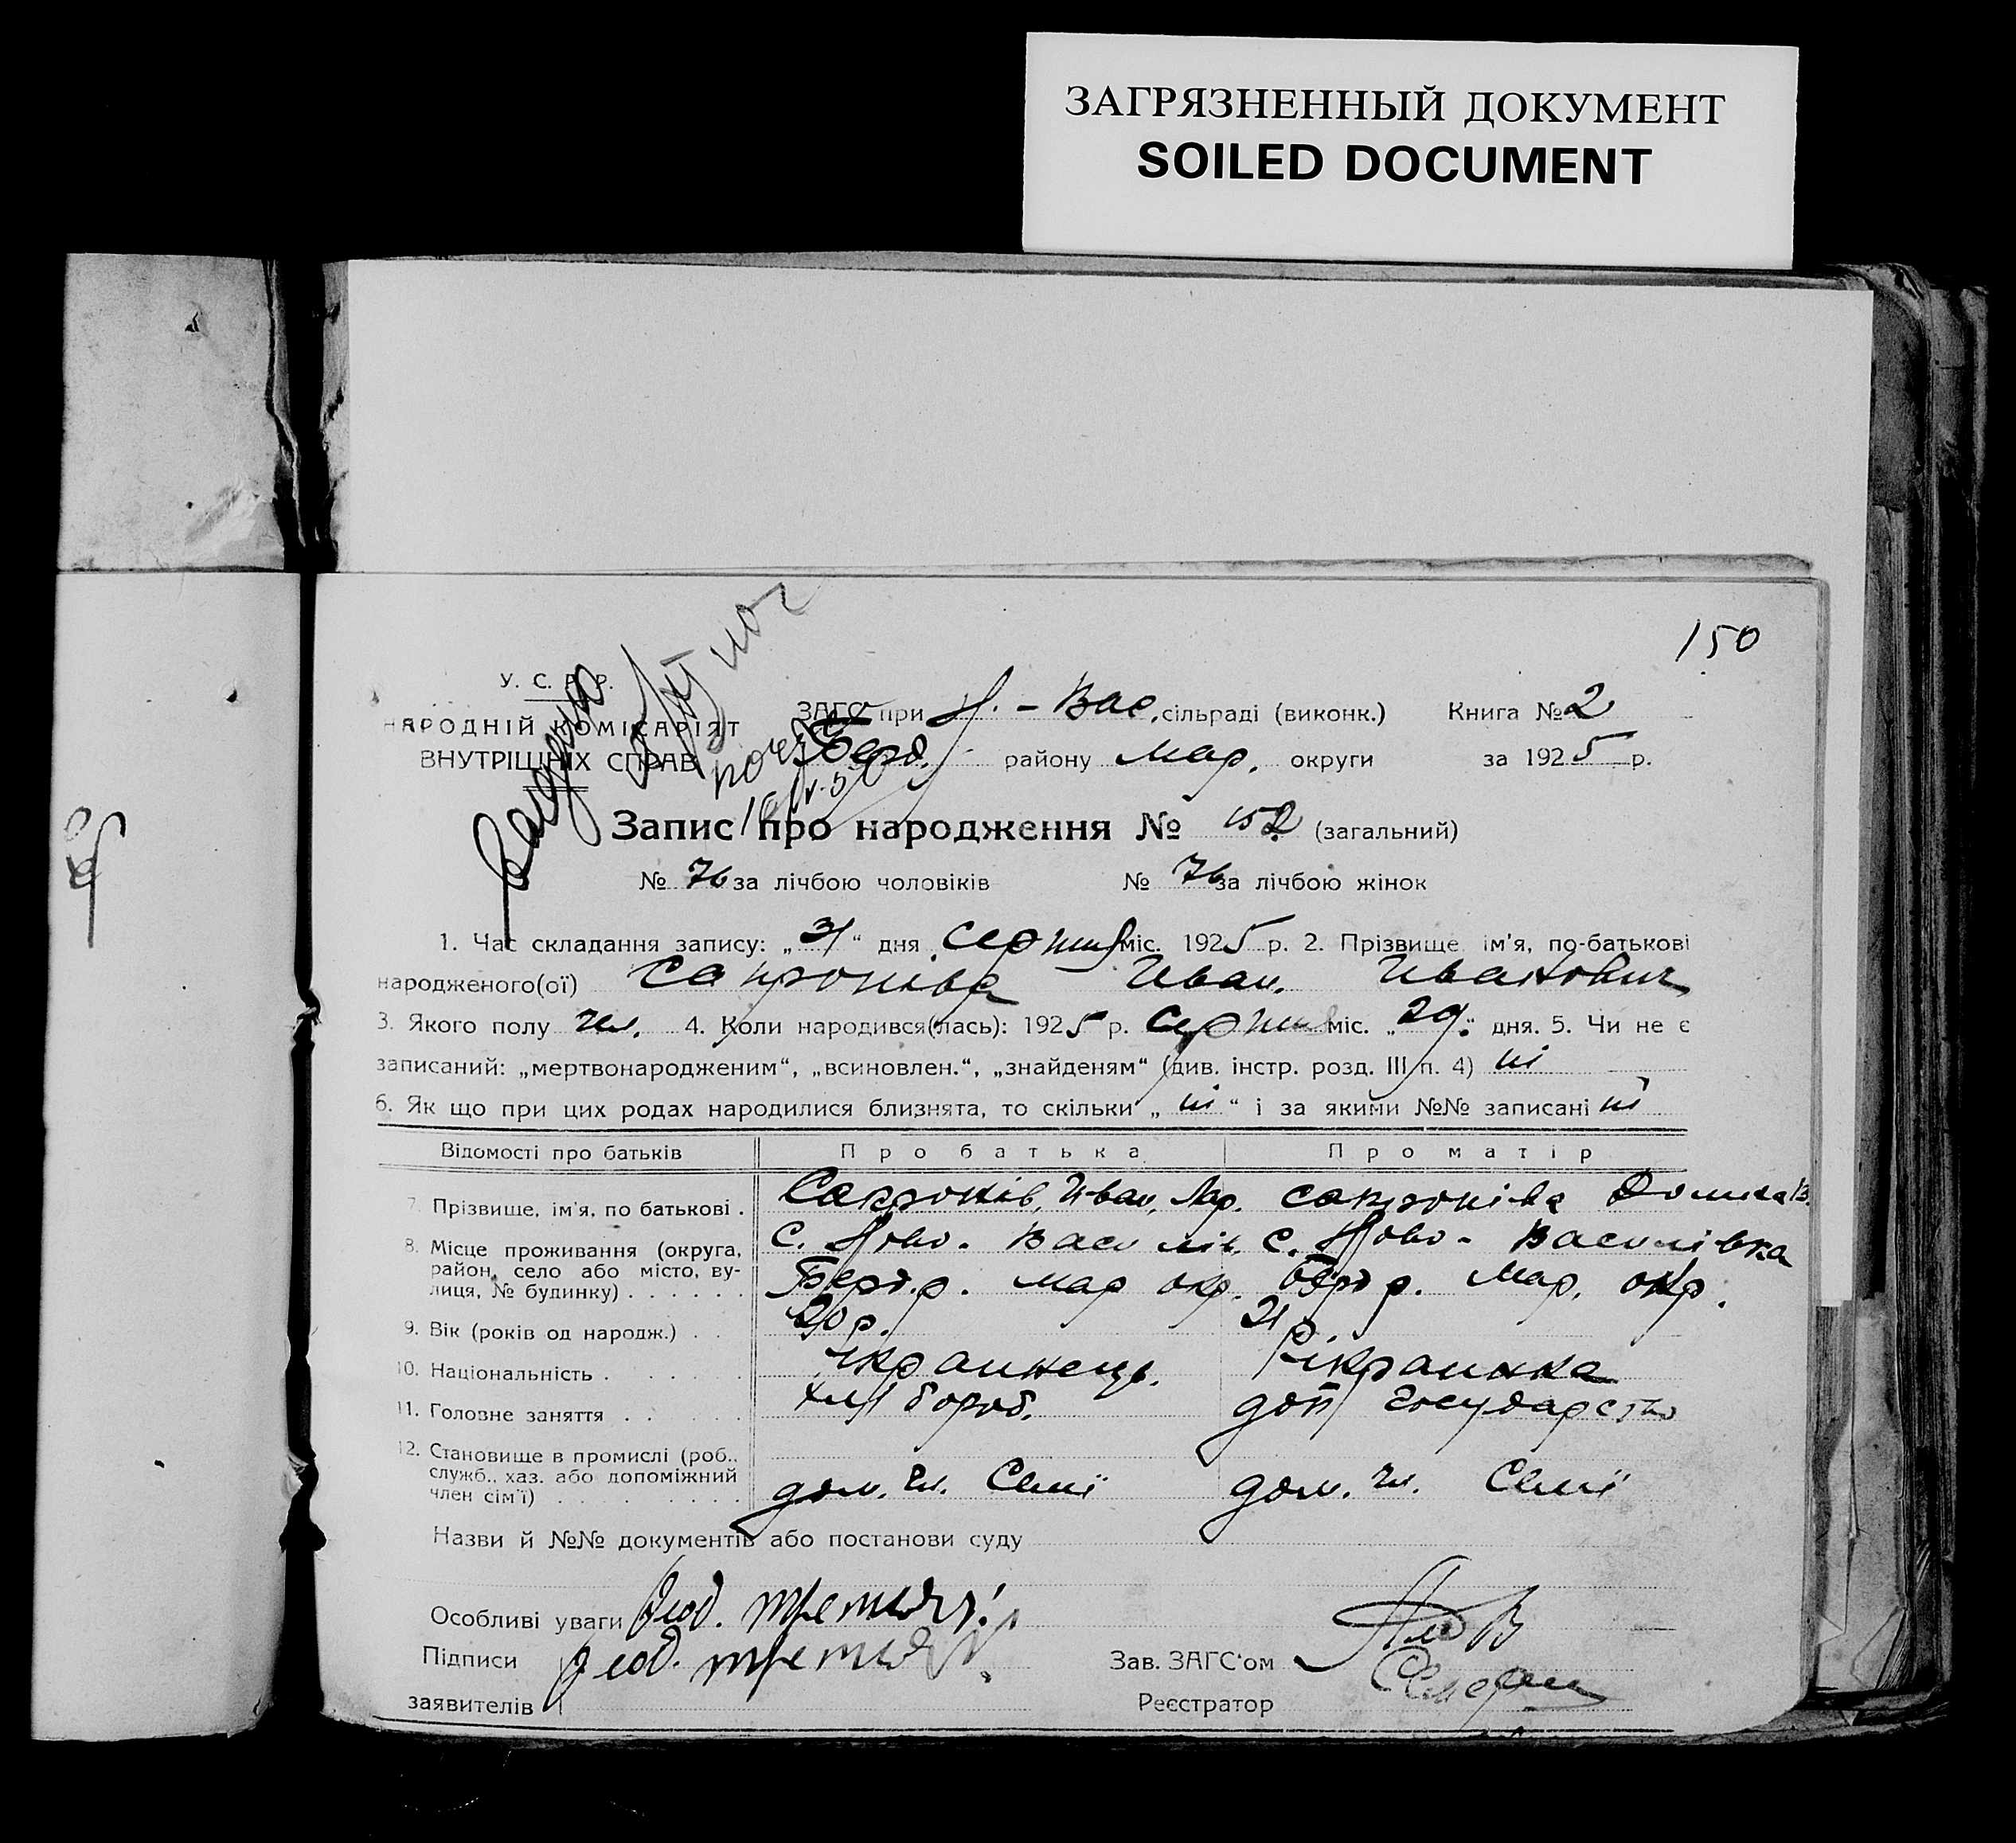 ЗАГРЯЗНЕННЫЙ ДОКУМЕНТ
SOILED DOCUMENT
150
У. С. Р. Р.
НАРОДНІЙ КОМІСАРІЯТ
ВНУТРІШНІХ СПРАВ
ЗАГС при Н. - Вас. сільраді (виконк.) Книга № 2
Берд. району Мар. округи за 1925 р.
Запис про народження № 152 (загальний)
№ 76 за лічбою чоловіків № 76 за лічбою жінок
1. Час складання запису: „31“ дня Серпня міс. 1925 р. 2. Прізвище ім'я, по-батькові
народженого(ої) Сапроніва Иван. Иванович
3. Якого полу чл. 4. Коли народився(лась): 1925 р. Серпня міс. „29.“ дня. 5. Чи не є
записаний: „мертвонародженим“, „всиновлен.“, „знайденям“ (див. інстр. розд. III п. 4) ні
6. Як що при цих родах народилися близнята, то скільки „ні“ і за якими №№ записані ні
Відомості про батьків Про батька Про матір
7. Прізвище, ім'я, по батькові . Сапронів, Иван, Лар. Сапроніва
8. Місце проживання (округа, район, село або місто, ву-
лиця, № будинку) . . . . . .
с. Ново-Василів. с. Ново-Василівка
Берд. р. Мар окр. Берд р. Мар. окр.
9. Вік (років од народж.) . . 20 р. 21
10. Національність . . . . . . Украинець. Украинка
11. Головне заняття . . . . . хлібороб. государство
12. Становище в промислі (роб.,
служб., хаз. або допоміжний
член сім'ї) . . . . . . . . дом. чл. Семї дом. чл. Семї
Назви й №№ документів або постанови суду
Особливі уваги
Підписи
заявителів
Зав. ЗАГС'ом
Реєстратор